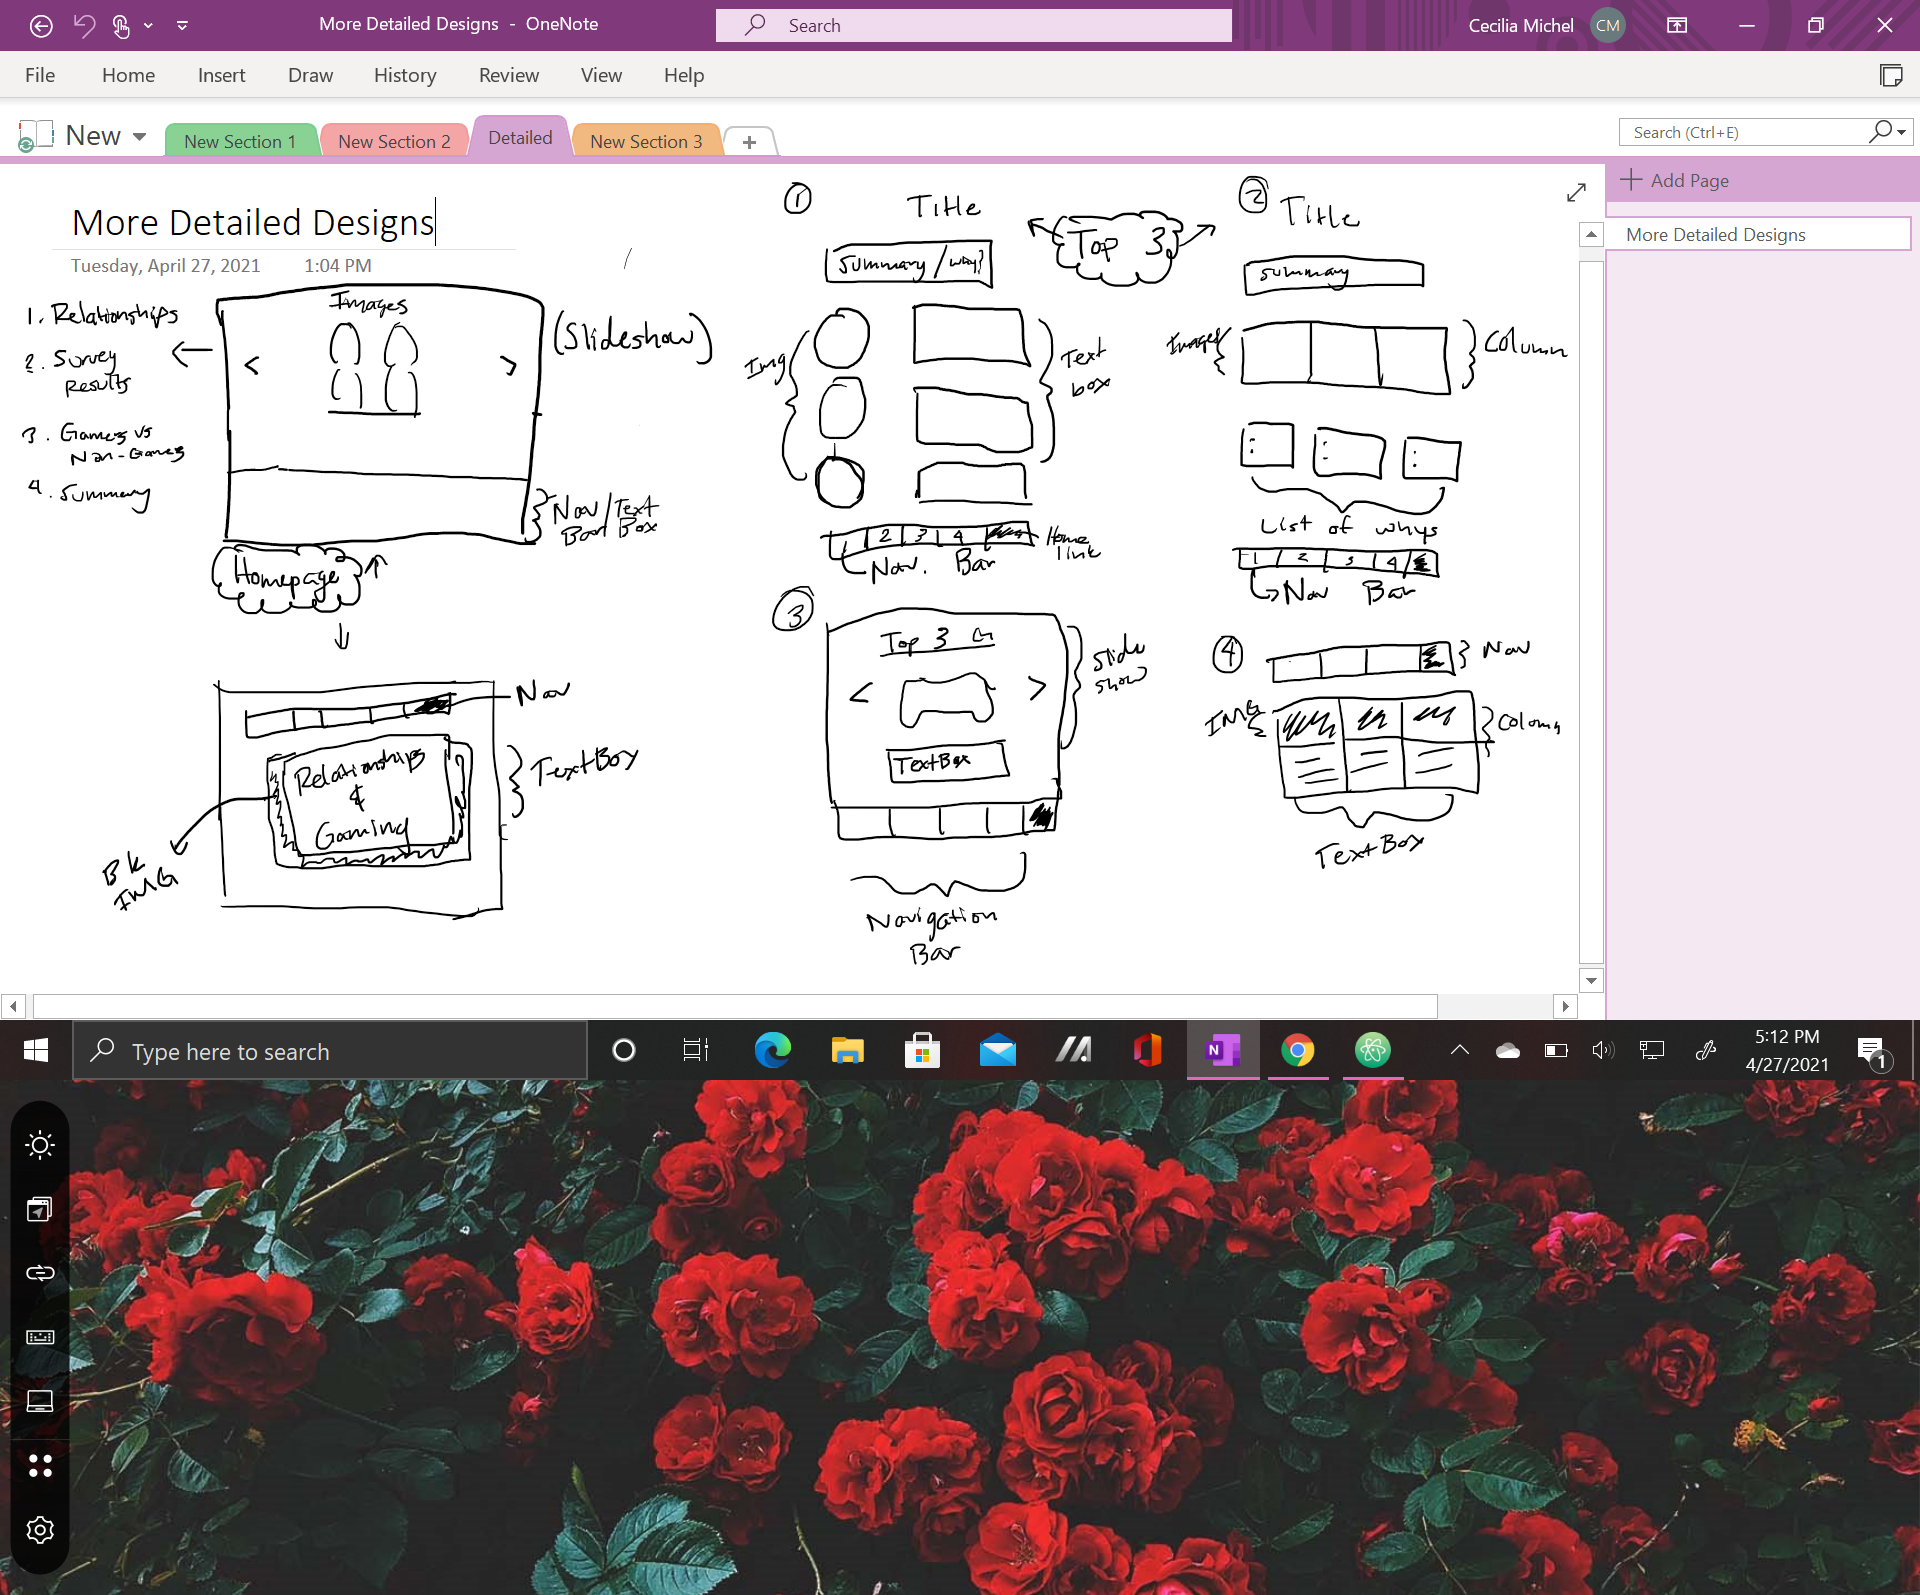 More Detailed Designs - OneNote
Search
Cecilia Michel
CM
File Home Insert Draw History Review View Help
New
New Section 1
New Section 2
Detailed
New Section 3
+
Search (Ctrl+E)
Add Page
More Detailed Designs
More Detailed Designs
Tuesday, April 27, 2021 1:04 PM
1. Relationships
2. Survey
Results
3. Games vs
Non-Games
4. Summary
Images
< >
(Slideshow)
Nav/Text
Bar Box
Homepage
Nav
Relationships
&
Gaming
TextBox
Bk
IMG
1
Title
Summary/why?
Top 3
Img
Text
box
1 2 3 4
Home
link
Nav. Bar
2
Title
Summary
Images
Column
List of whys
1 2 3 4
Nav Bar
3
Top 3 G
< >
TextBox
Slide
show
Navigation
Bar
4
Nav
IMG
TextBox
Type here to search
5:12 PM
4/27/2021
1